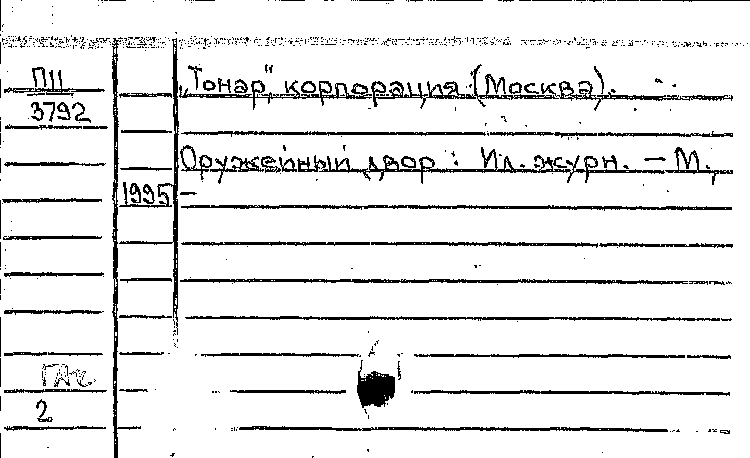 П11
3792
„Тонар", корпорация (Москва).
Оружейный двор : Ил. журн. – М.,
1995 –
2